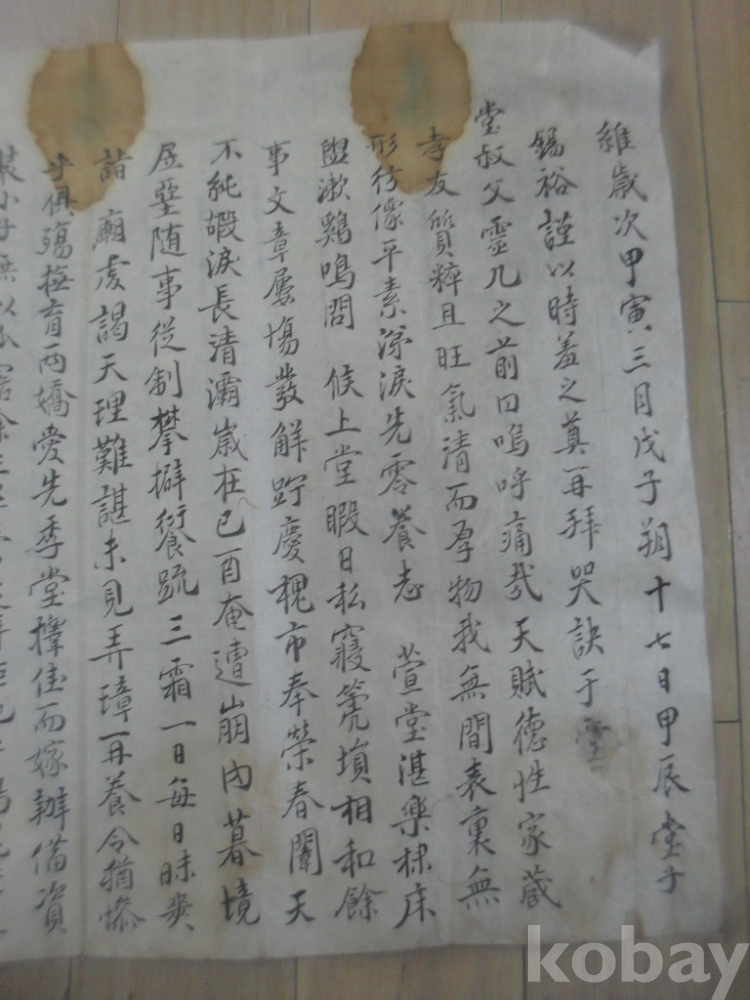 維歲次甲寅三月戊子朔十七日甲辰堂子
錫裕謹以時羞之奠再拜哭訣于
堂叔父靈几之前曰嗚呼痛哉天賦德性家藏
孝友質粹且旺氣清而孕物我無間表裏無
形彷像平素涕淚先零養志 萱堂湛樂棣床
盥漱鷄鳴問 候上堂暇日私寢箎塤相和餘
事文章屢塲發解貯慶槐市奉榮春闈天
不純嘏淚長清灞歲在己酉奄遭崩內暮境
居堊隨事從制攀擗饘䟽三霜一日每日昧爽
詣 廟虔謁天理難諶未見弄璋再養令猶慘
乎俱殤撫育兩嬌愛先季堂擇佳而嫁辦備資
裝小子無以
kobay